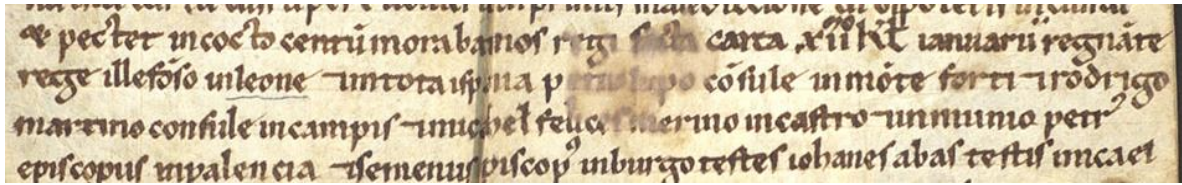 & pectet in cocto centū morabatinos regi facta carta .xiiº kł ianuarii regnāte
rege illefōso in leone ⁊ in tota ispania petro lupo cōsule in mōte forti ⁊ rodrigo
martino consule in campis ⁊ michael felices merino in castro ⁊ in munio petrꝰ
episcopus in palencia ⁊ semenus episcopꝰ in burgo testes iohanes abas testis micael